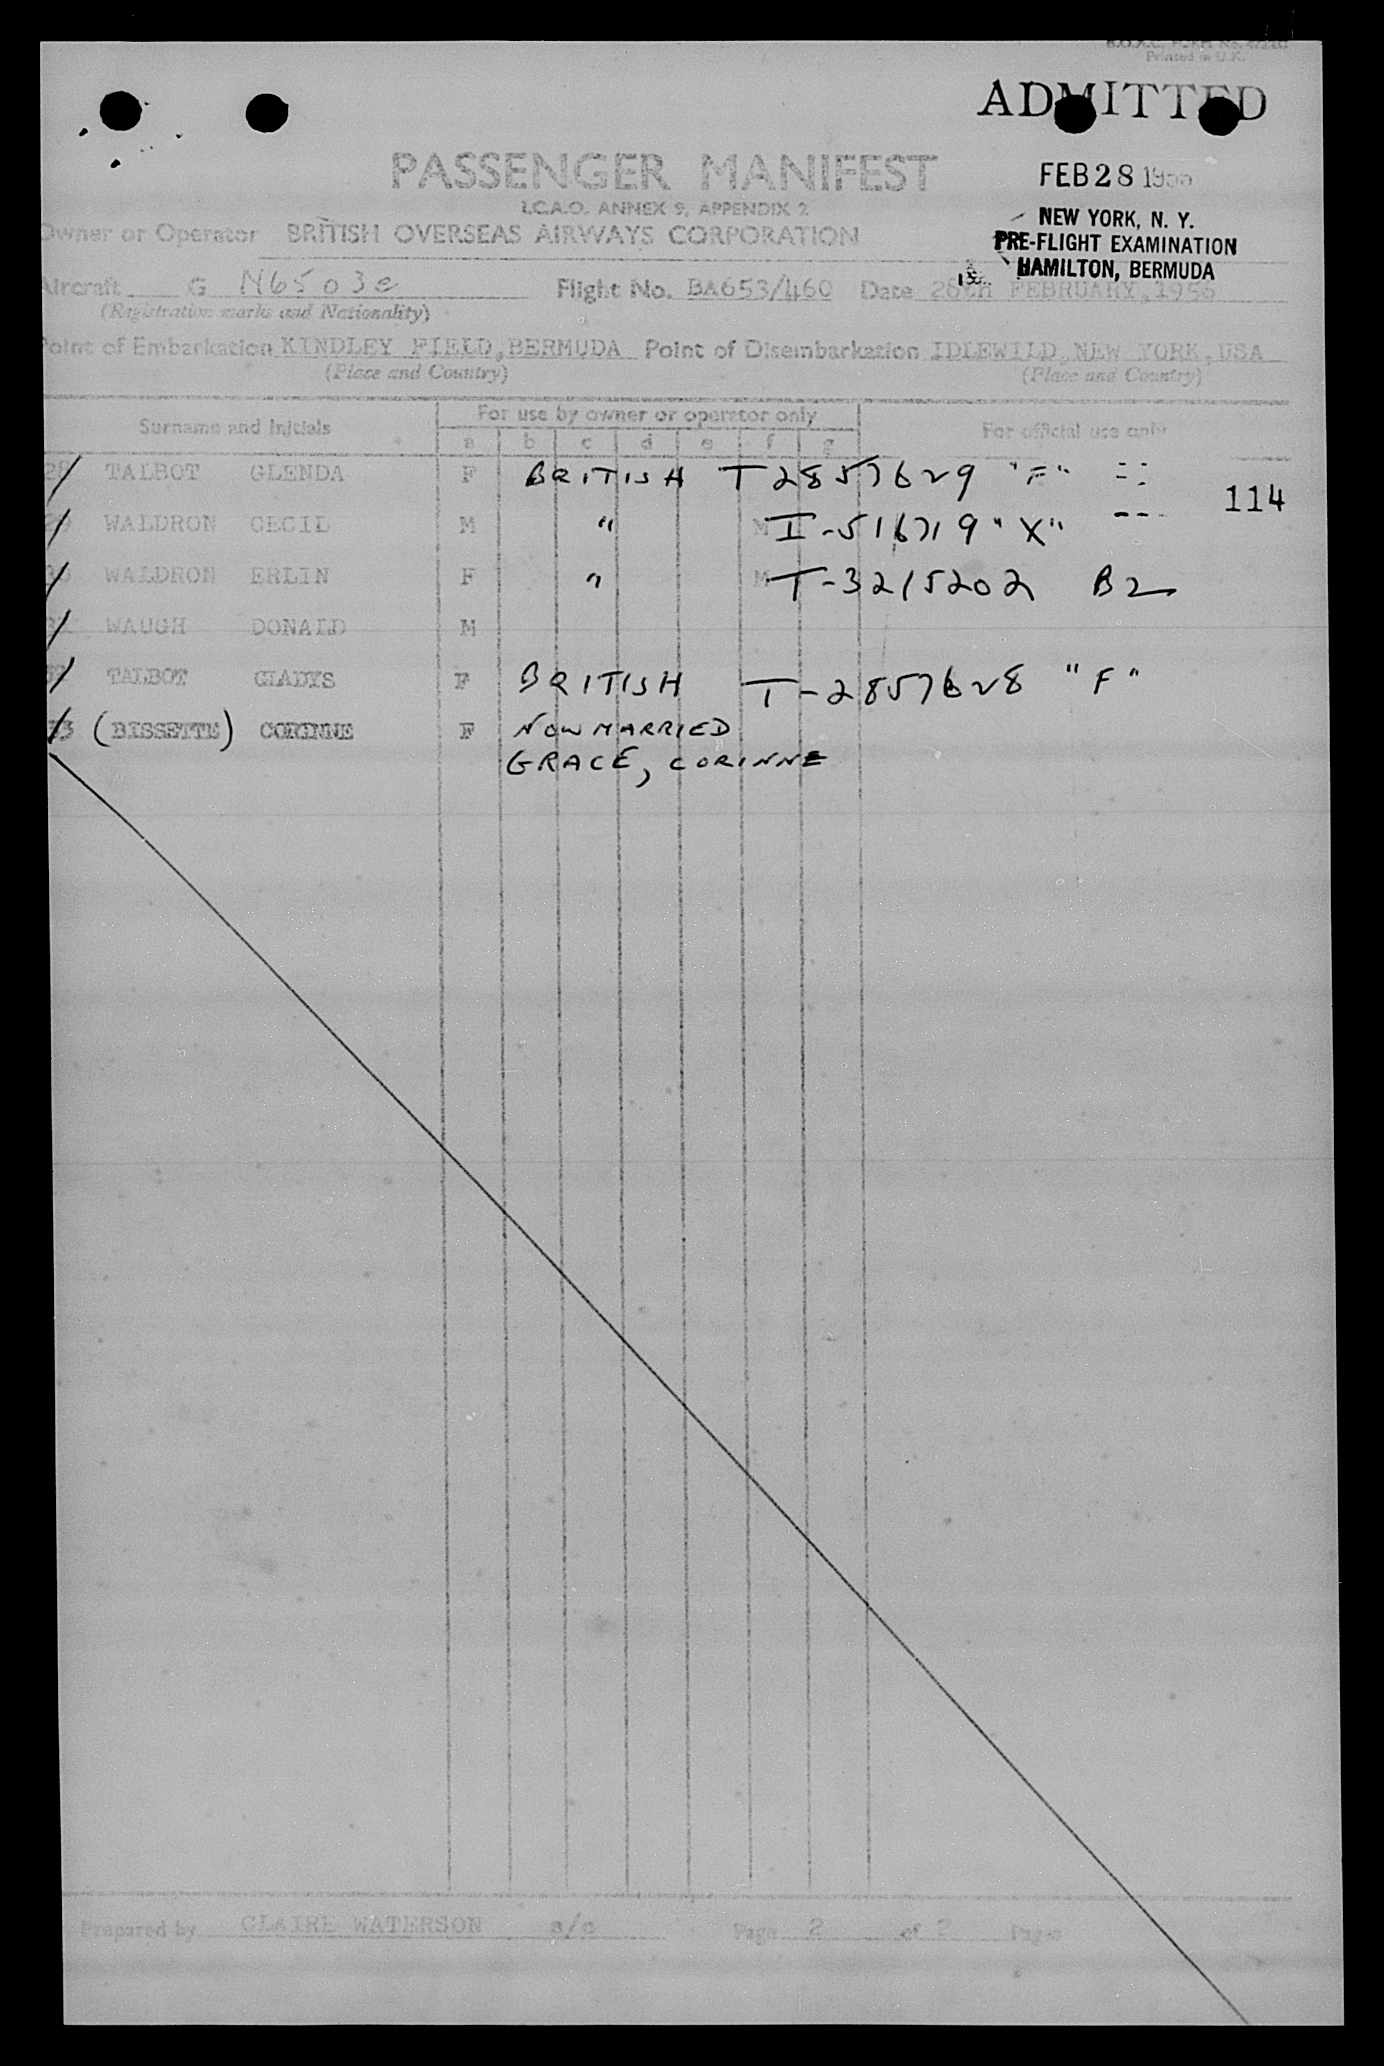 Printed in U.K.
ADMITTED
PASSENGER MANIFEST
FEB 28 195
I.C.A.O. ANNEX 9, APPENDIX 2
NEW YORK, N. Y.
Owner or Operator BRITISH OVERSEAS AIRWAYS CORPORATION
PRE-FLIGHT EXAMINATION
HAMILTON, BERMUDA
Aircraft G N6503c Flight No. BA653/460 Date 28th FEBRUARY, 1956
(Registration marks and Nationality)
Point of Embarkation KINDLEY FIELD, BERMUDA Point of Disembarkation IDLEWILD, NEW YORK, USA
(Place and Country) (Place and Country)
Surname and Initials For use by owner or operator only For official use only
a b c d e f g
28 TALBOT GLENDA F BRITISH T 2857629 "F"
114
29 WALDRON CECIL M " I-516719 "X"
30 WALDRON ERLIN F " T-3215202 B2
31 WAUGH DONALD M
32 TALBOT GLADYS F BRITISH T-2857628 "F"
33 (BISSETTE) CORINNE F NOW MARRIED
GRACE, CORINNE
Prepared by CLAIRE WATERSON s/c Page 2 of 2 Pages